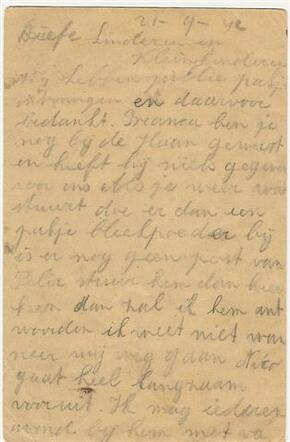 21-9-42
Liefe Kinderen en
Kleinkinderen
Wij hebben post en pakje
ontvangen en daarvoor
bedankt. Bianca ben je
nog bij de Haan geweest
en heeft hij niets gegeven
voor ons Als je weer wat
stuurt doe er dan een
pakje bleekpoeder bij
is er nog geen post van
Felix stuur hem dan hier
heen dan zal ik hem ant
woorden ik weet niet wan
neer wij weg gaan Nico
gaat heel langzaam
vooruit. Ik mag iederen
avond bij hem met va